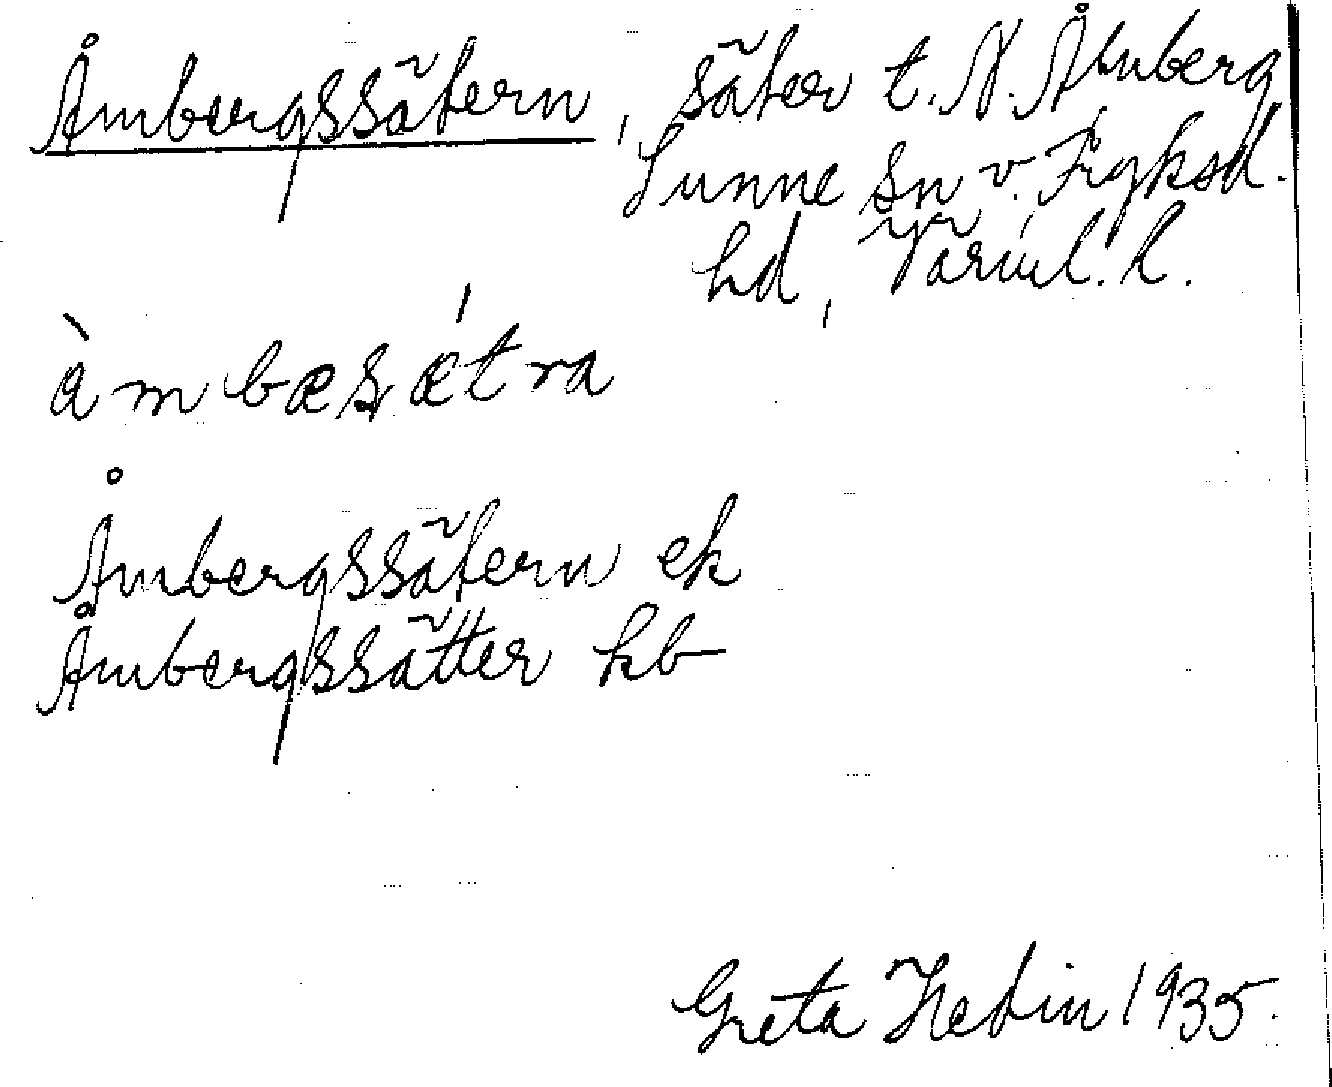 Åmbergssätern, säter t. N. Åmberg,
Sunne sn v. Fryksd.
hd, Värml. l.
àmbæsǽtra
Åmbergssätern ek
Åmbergssätter kb
Greta Hedin 1935.